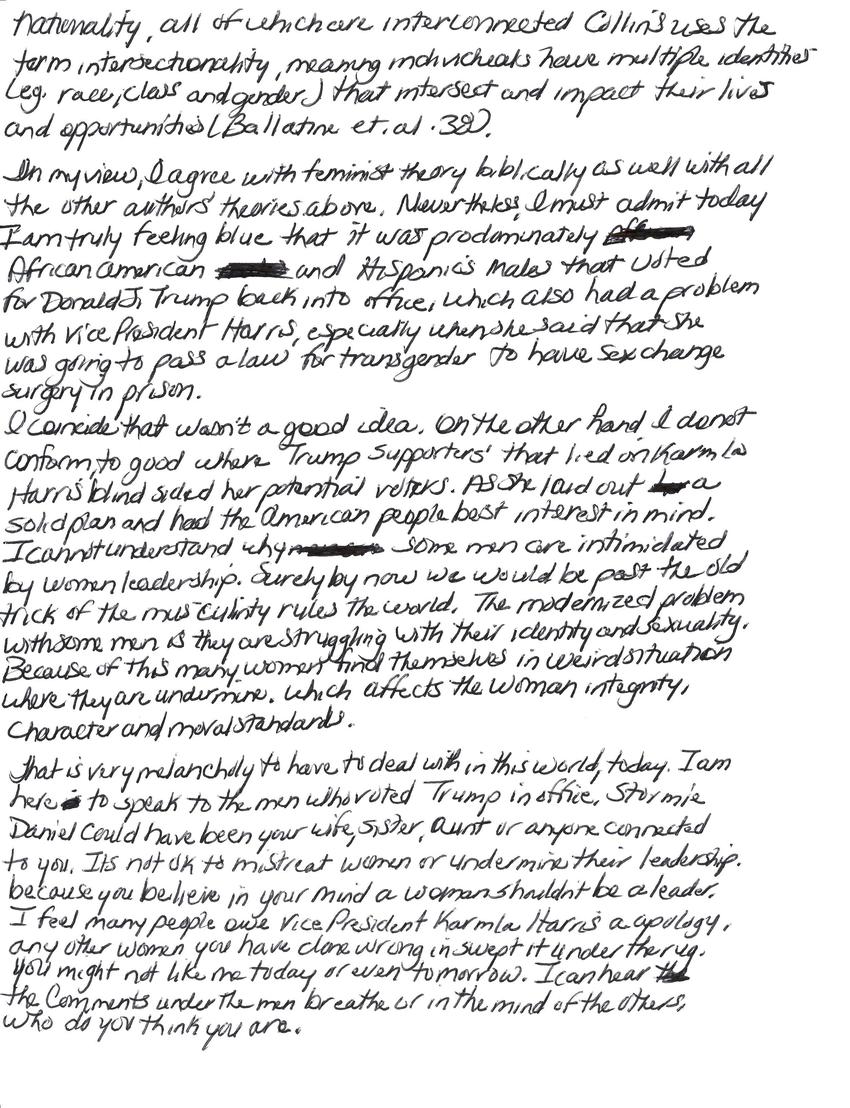 Nationality, all of which are interconnected Collin's uses the
term intersectionality, meaning individuals have multiple identities
(eg. race, class and gender) that intersect and impact their lives
and opportunities (Ballatine et. al. 382).
In my view, I agree with feminist theory biblically as well with all
the other authors' theories above. Nevertheless, I must admit today
I am truly feeling blue that it was prodominately
African american and Hispanic's Males that voted
for Donald J. Trump back into office, which also had a problem
with Vice President Harris, especially when she said that she
was going to pass a law for transgender to have sex change
surgery in prison.
I coincide that wasn't a good idea. On the other hand I do not
conform, to good where Trump supporters' that lied on Karmla
Harris blind sided her potential voters. As she laid out a
solid plan and had the American people best interest in mind.
I cannot understand why some men are intimidated
by women leadership. Surely by now we would be past the old
trick of the musculinty rules the world. The modernized problem
with some men is they are struggling with their identity and sexuality.
Because of this many women find themselves in weird situation
where they are undermine. Which affects the woman integrity,
Character and moral standards.
That is very melancholy to have to deal with in this world, today. I am
here to speak to the men who voted Trump in office, Stormie
Daniel Could have been your wife, sister, aunt or anyone connected
to you. Its not ok to mistreat women or undermine their leadership.
because you believe in your mind a woman shouldn't be a leader.
I feel many people owe Vice President Karmla Harris a apology,
any other women you have done wrong in swept it under the rug.
You might not like me today or even tomorrow. I can hear
the Comments under the men breathe or in the mind of the others,
Who do you think you are.